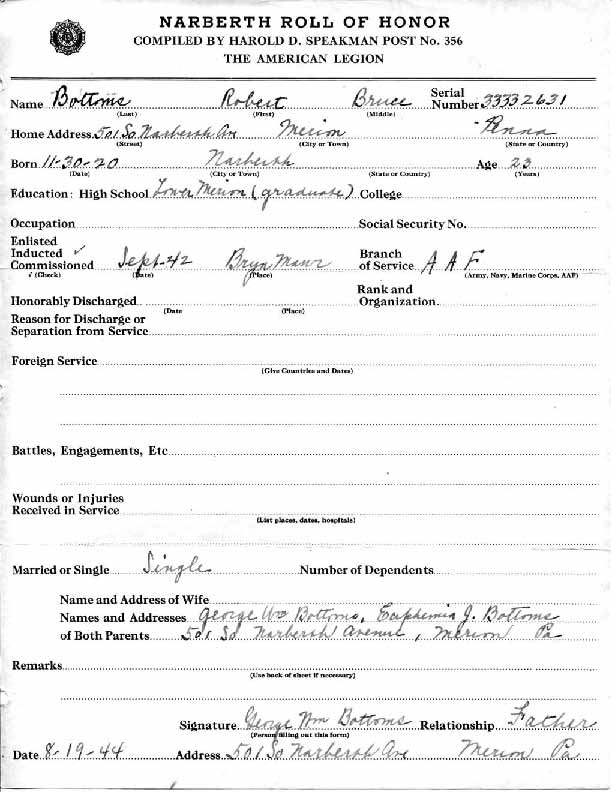 NARBERTH ROLL OF HONOR
COMPILED BY HAROLD D. SPEAKMAN POST No. 356
THE AMERICAN LEGION
Name Bottoms Robert Bruce Serial Number 33332631
(Last) (First) (Middle)
Home Address 501 So Narberth Av Merion Penna
(Street) (City or Town) (State or Country)
Born 11-30-20 Narberth Age 23
(Date) (City or Town) (State or Country) (Years)
Education: High School Lower Merion (graduate) College
Occupation Social Security No.
Enlisted
Inducted ✓ Branch
Commissioned Sept-42 Bryn Mawr of Service A A F
√ (Check) (Date) (Place) (Army, Navy, Marine Corps, AAF)
Rank and
Honorably Discharged Organization
(Date (Place)
Reason for Discharge or
Separation from Service
Foreign Service
(Give Countries and Dates)
Battles, Engagements, Etc
Wounds or Injuries
Received in Service
(List places, dates, hospitals)
Married or Single Single Number of Dependents
Name and Address of Wife
Names and Addresses George Wm Bottoms, Euphemia J. Bottoms
of Both Parents 501 So Narberth Avenue, Merion Pa
Remarks
(Use back of sheet if necessary)
Signature George Wm Bottoms Relationship Father
(Person filling out this form)
Date 8-19-44 Address 501 So Narberth Ave Merion Pa